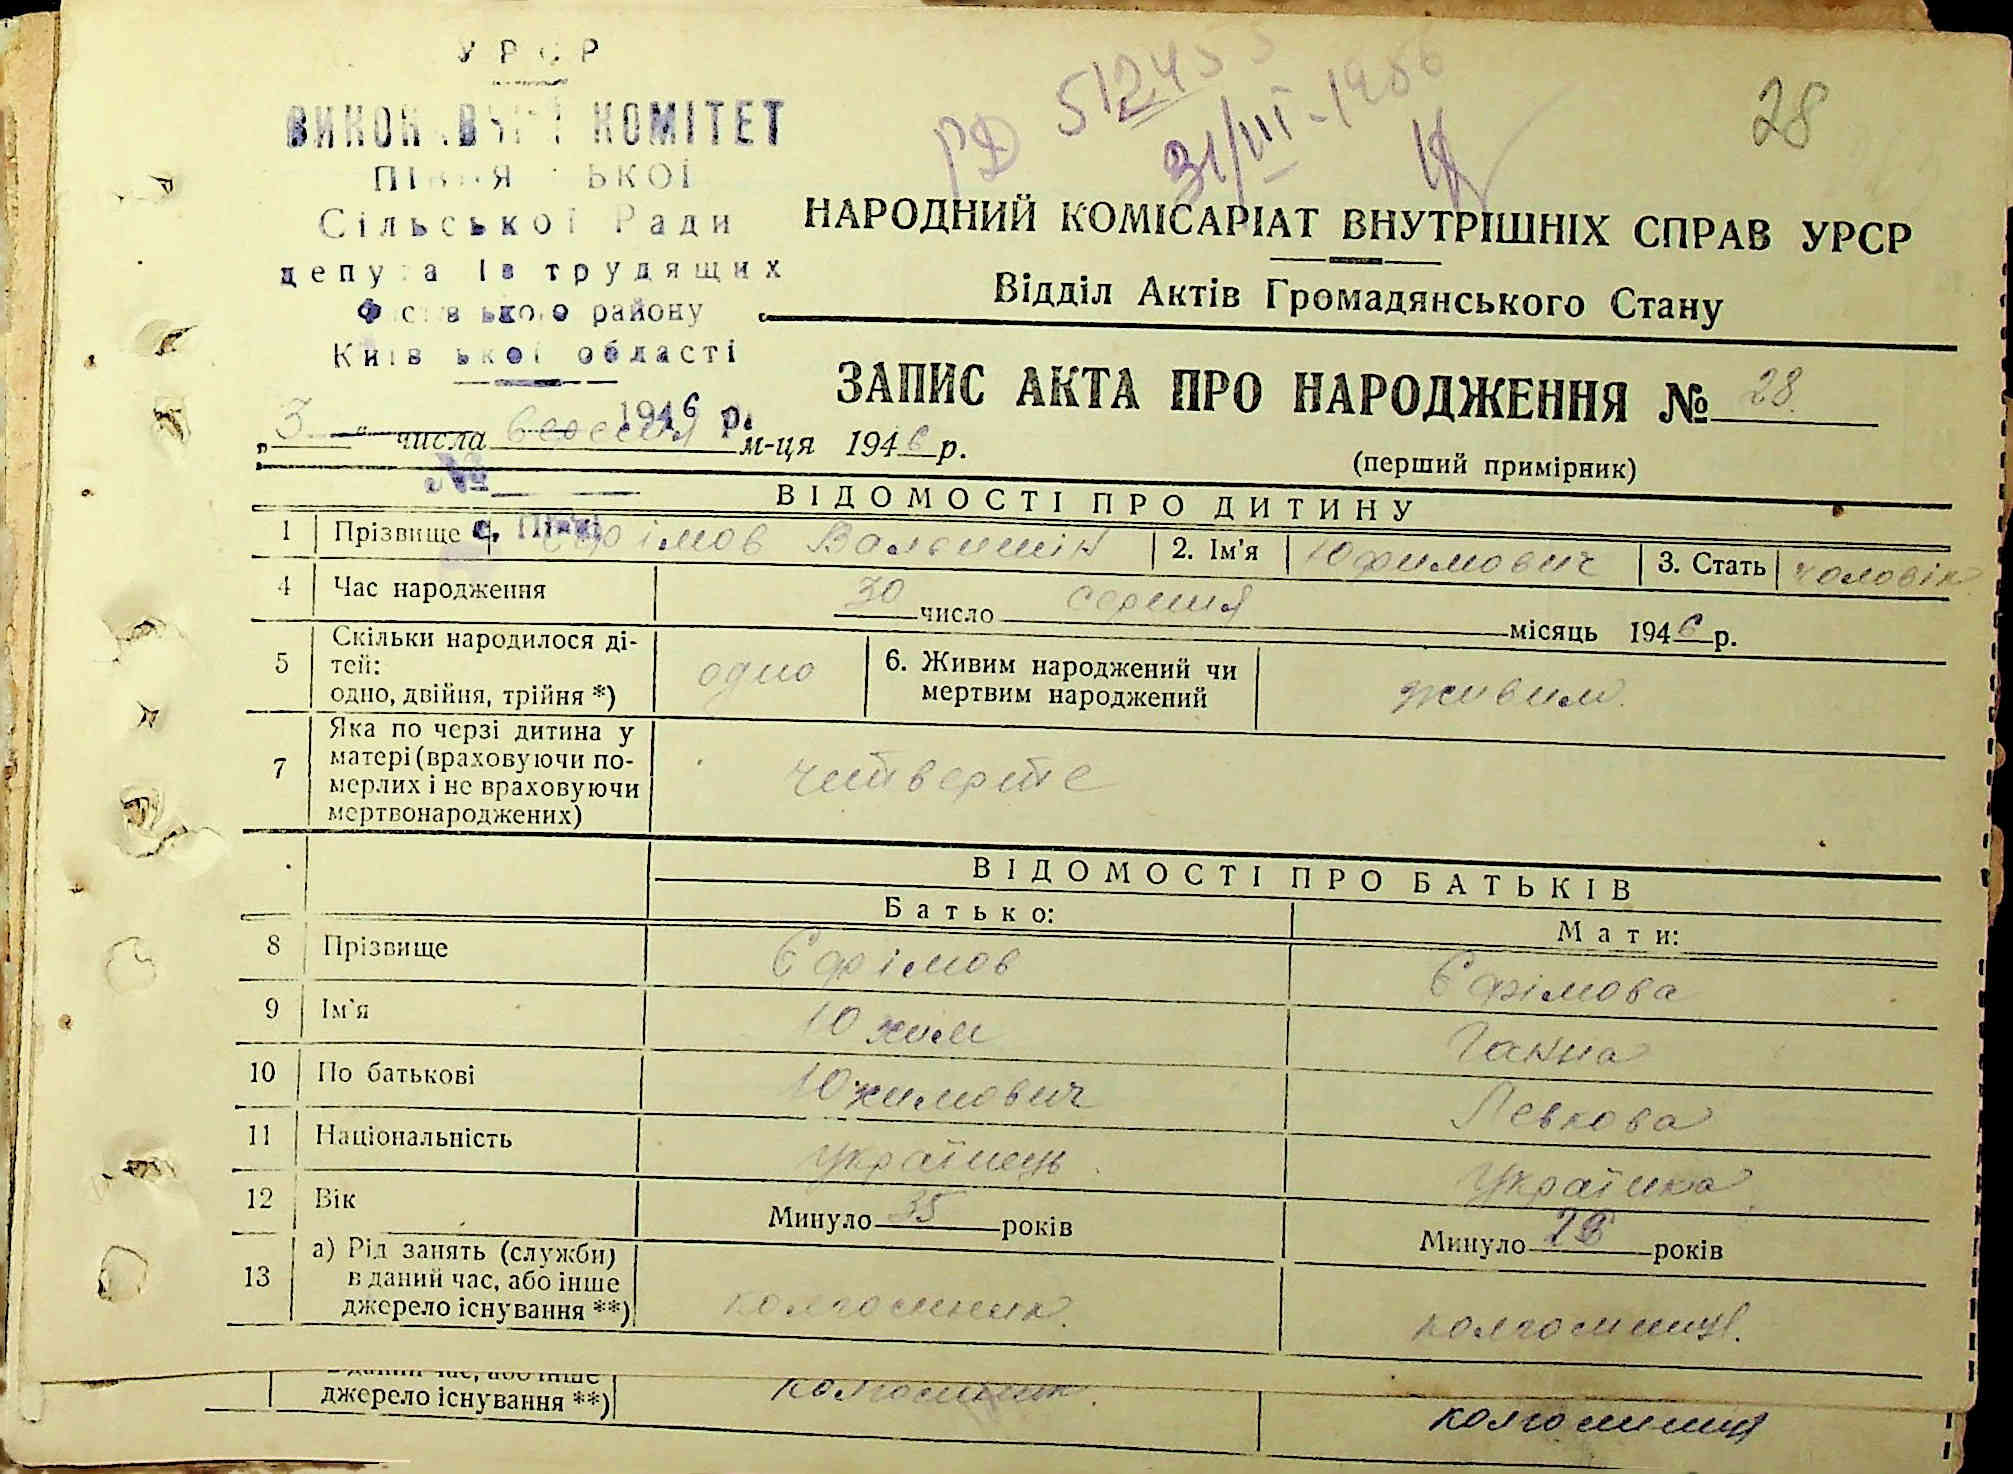 УРСР
ВИКОНАВЧИЙ КОМІТЕТ
Сільської Ради
депутатів трудящих
Фастівського району
Київської області
1946 р.
№
РД 512455
31/VII-1986
28
НАРОДНИЙ КОМІСАРІАТ ВНУТРІШНІХ СПРАВ УРСР
Відділ Актів Громадянського Стану
ЗАПИС АКТА ПРО НАРОДЖЕННЯ № 28.
„3“ числа вересня м-ця 1946 р.
(перший примірник)
ВІДОМОСТІ ПРО ДИТИНУ
1 Прізвище Єфімов 2. Ім'я Юфимович 3. Стать чоловік
4 Час народження 30 число серпня місяць 1946 р.
5 Скільки народилося ді-
тей:
одно, двійня, трійня *) одно 6. Живим народжений чи
мертвим народжений живим.
7 Яка по черзі дитина у
матері (враховуючи по-
мерлих і не враховуючи
мертвонароджених) читверте
ВІДОМОСТІ ПРО БАТЬКІВ
Батько: Мати:
8 Прізвище Єфімов Єфімова
9 Ім'я Юхим Ганна
10 По батькові Юхимович Левкова
11 Національність Українець Українка
12 Вік Минуло 35 років Минуло 28 років
13 а) Рід занять (служби)
в даний час, або інше
джерело існування **) колгоспник. колгоспниця.
в даний час, або інше
джерело існування **) колгоспник. колгоспниця